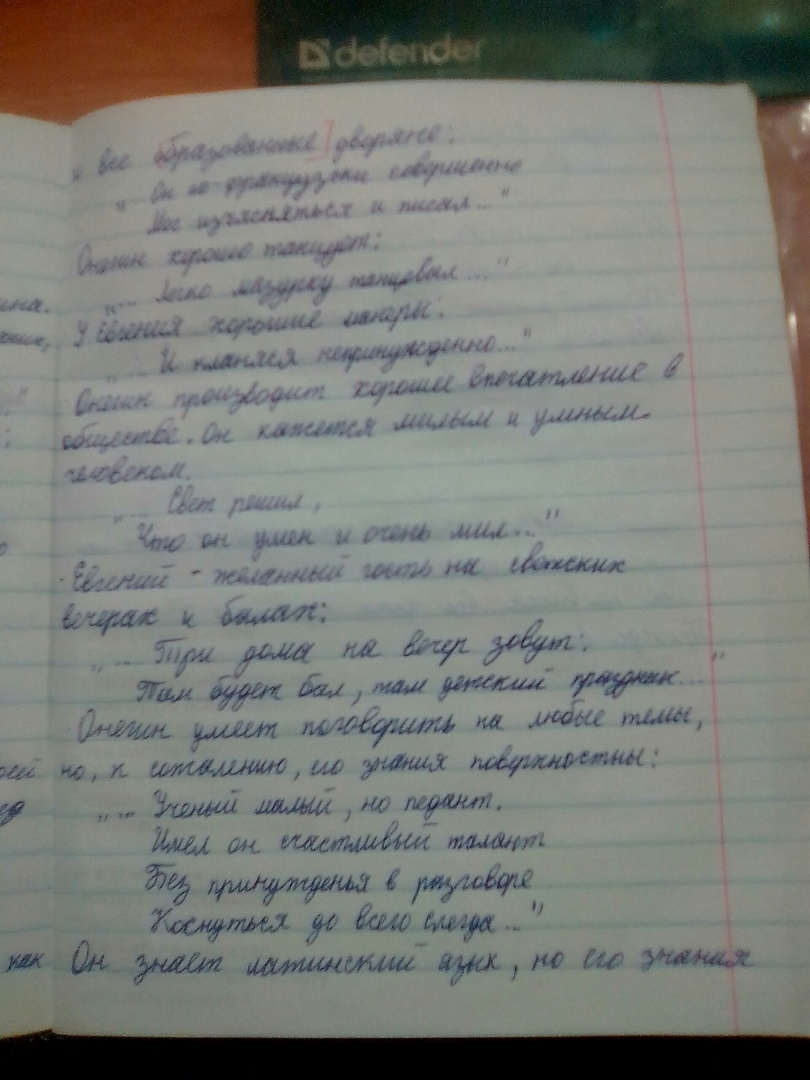 defender
и все образованные дворяне:
"... Он по-французски совершенно
Мог изъясняться и писал..."
Онегин хорошо танцует:
"... Легко мазурку танцевал..."
У Евгения хорошие манеры:
"... И кланялся непринужденно..."
Онегин производит хорошее впечатление в
обществе. Он кажется милым и умным
человеком.
"... Свет решил,
Что он умен и очень мил..."
Евгений - желанный гость на светских
вечерах и балах:
"... Три дома на вечер зовут:
Там будет бал, там детский праздник..."
Онегин умеет поговорить на любые темы,
но, к сожалению, его знания поверхностны:
"... Ученый малый, но педант.
Имел он счастливый талант
Без принужденья в разговоре
Коснуться до всего слегда..."
как Он знает латинский язык, но его знания